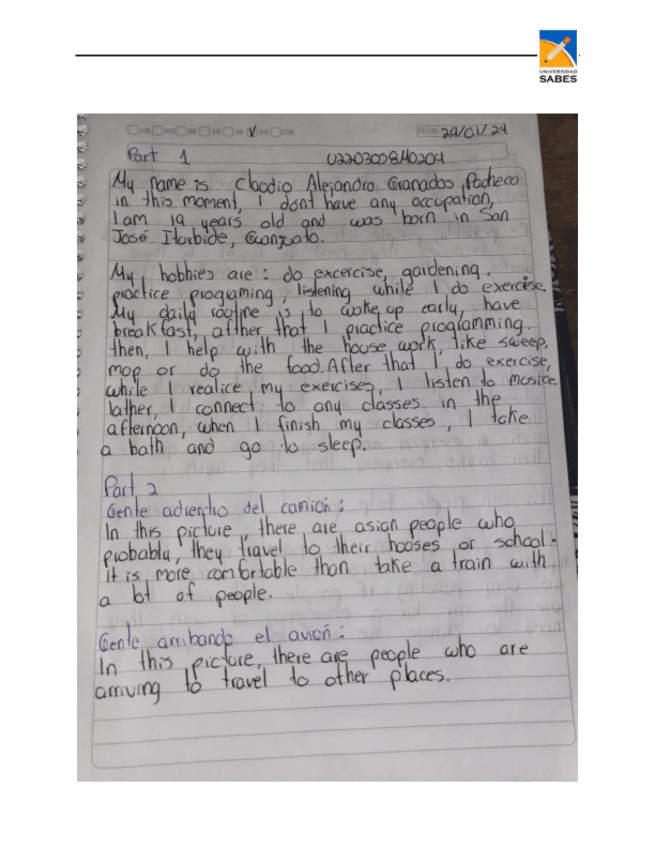 UNIVERSIDAD
SABES
LUN MAR MIE JUE VIE SAB DOM FECHA 29/01/24
Part 1 U22030058M0204
My name is Cloudio Alejandro Granados Pacheco
in this moment, I dont have any occupation,
I am 19 years old and was born in San
José Iturbide, Guanjuato.
My hobbies are: do excercise, gardening.
practice programing, listening while I do exercise.
My daily routine is to woke up early, have
breakfast, afther that I practice programming.
then, I help with the house work, like sweep,
mop or do the food. After that I do exercise,
while I realice my exercises, I listen to mosice
lather, I connect to any classes in the
afternoon, when I finish my classes, I take
a bath and go to sleep.
Part 2
Gente adrentro del camión:
In this picture, there are asian people who
probably, they travel to their hooses or school.
it is more comfortable than take a train with
a lot of people.
Gente arribando el avión:
In this picture, there are people who are
arriving to travel to other places.